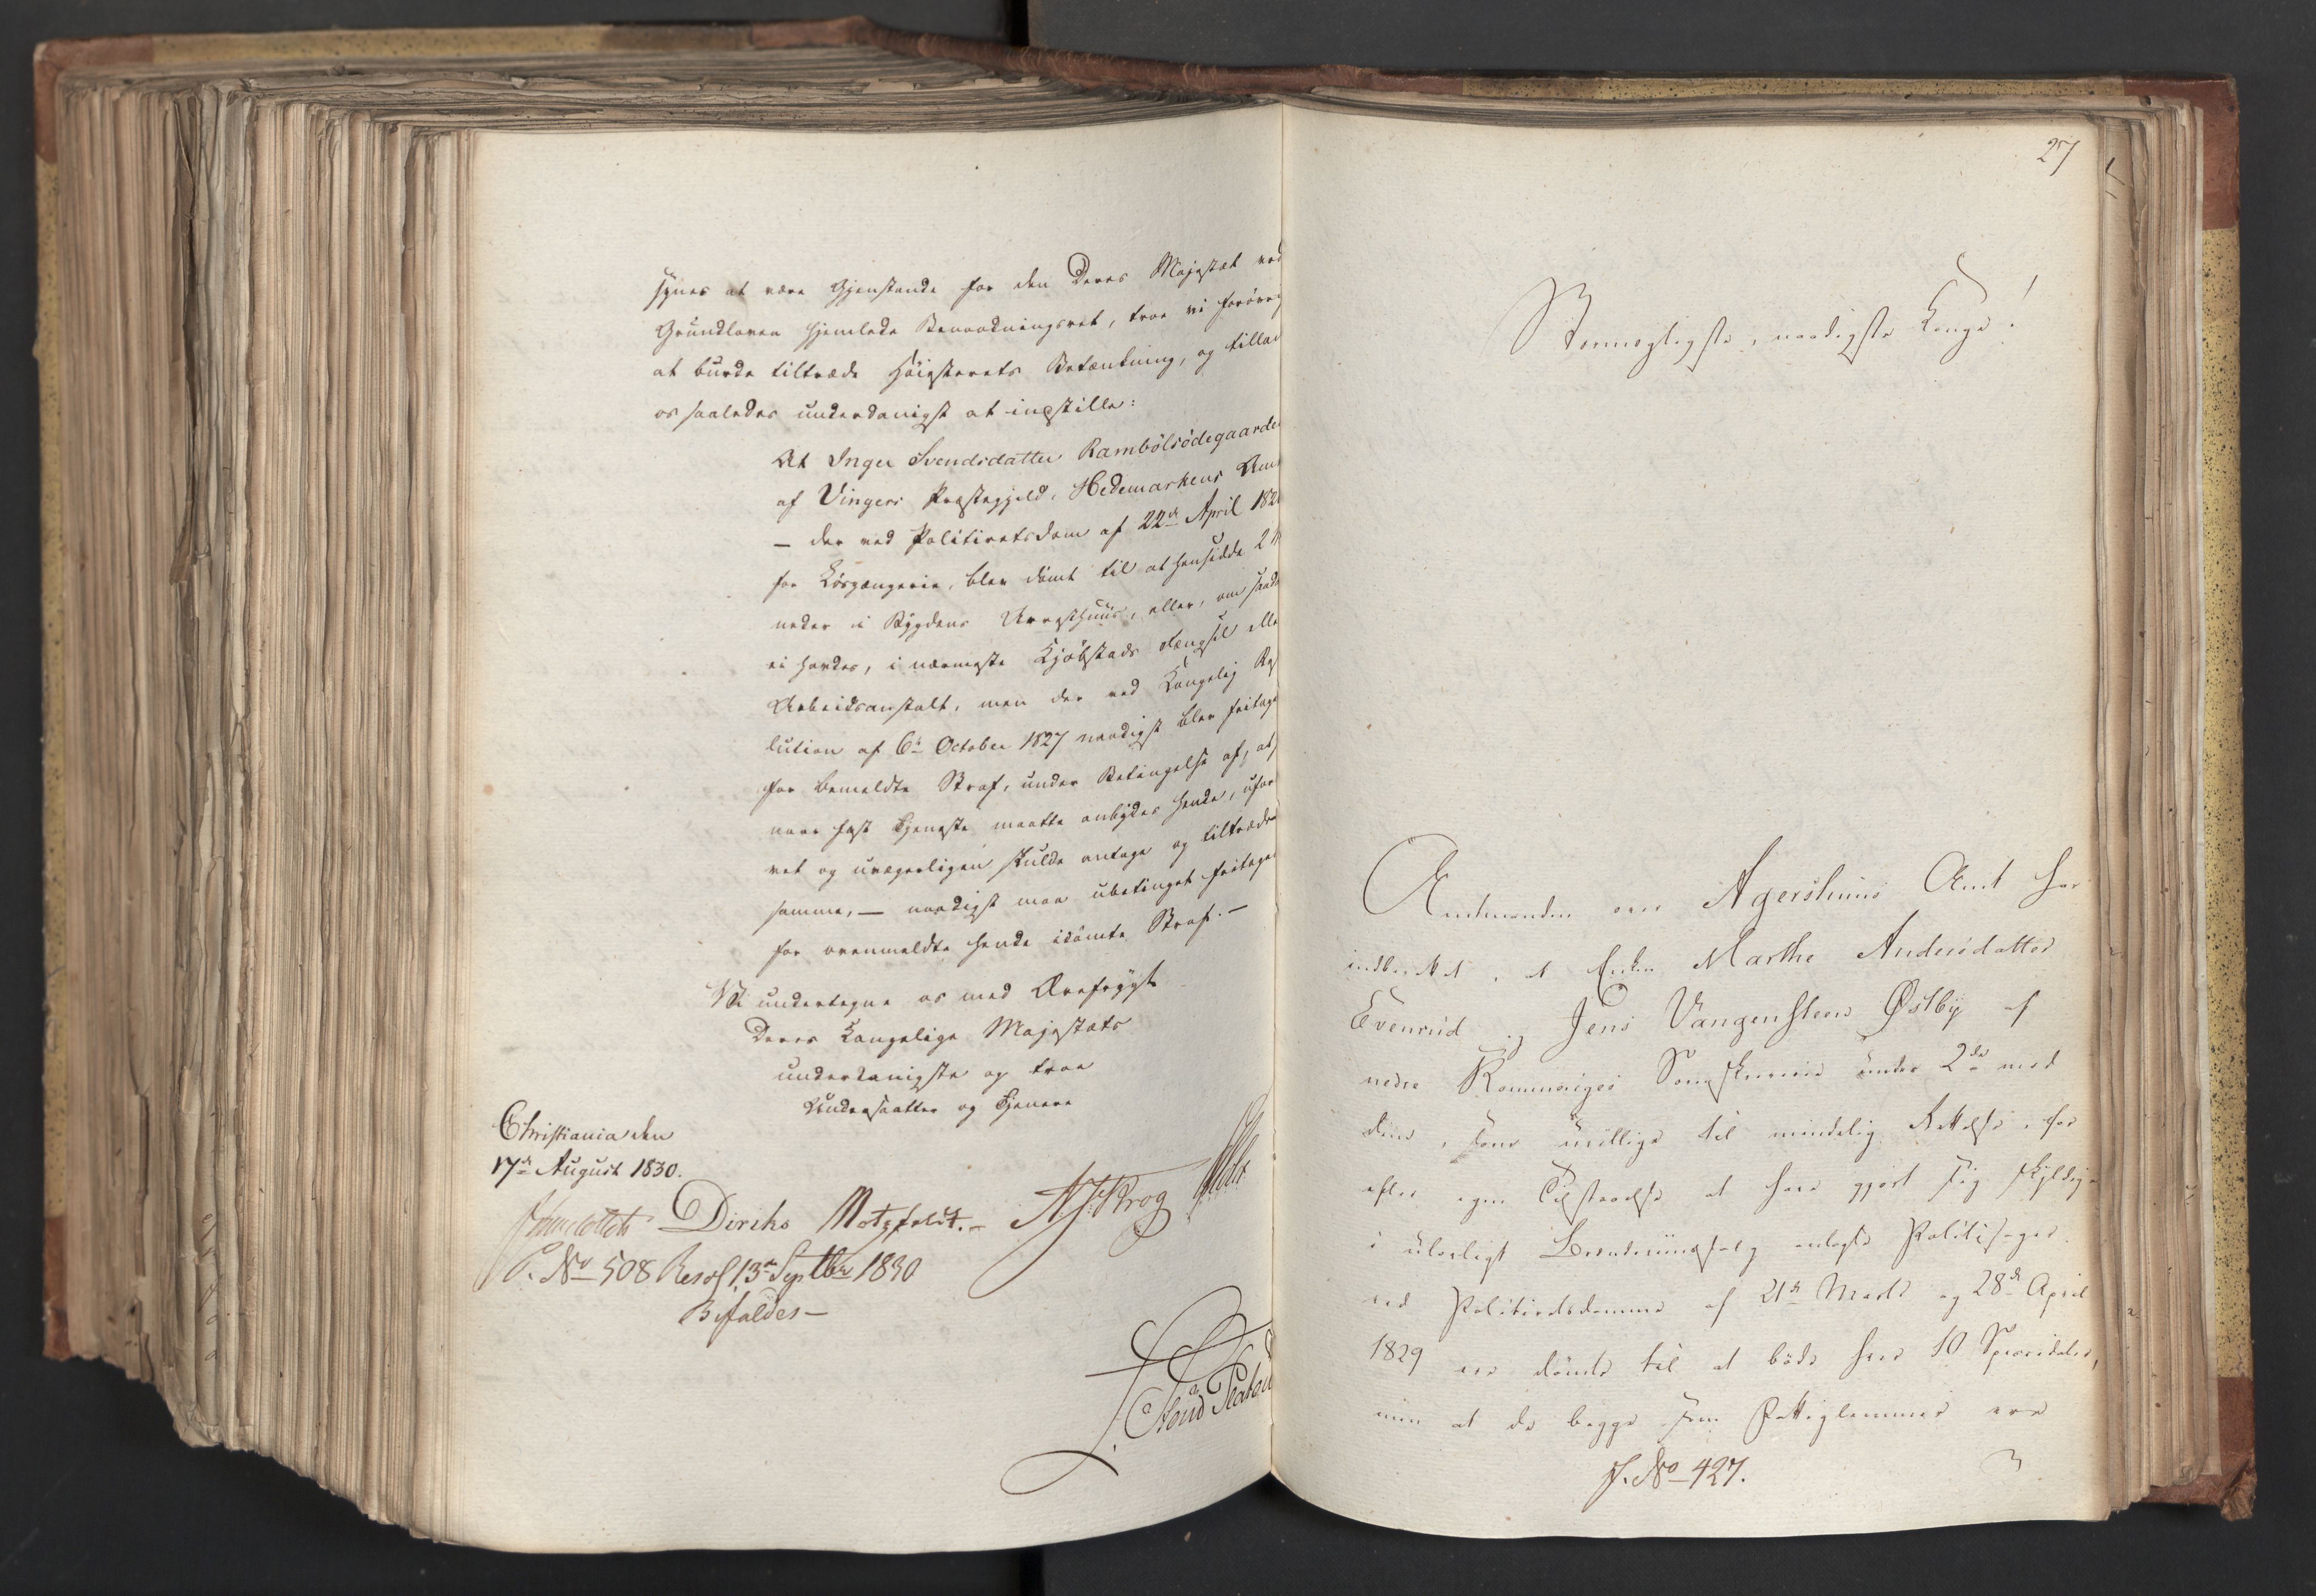 synes at være Gjenstande for den Deres Majestæt ved
Grundloven hjemlede Benaadningsret, troe vi forøvrig
at burde tiltræde Høiesterets Betænkning, og tillade
os saaledes underdanigst at indstille:
At Inger Svendsdatter Rambölsödegaarden
af Vingers Præstegjeld, Hedemarkens Amt
— der ved Politieretsdom af 22de April 182
for Løsgængerie, blev dömt til at hensidde 2 Maa
neder i Bygdens Arresthuus, eller, om saadant
ei havdes, i nærmeste Kjøbstads Fængsel eller
Arbeidsanstalt, men der ved Kongelig Reso
lution af 6te October 1827 naadigst blev fritagen
for bemeldte Straf, under Betingelse af, at
naar fast Tjeneste maatte anbydes hende, ufor
og uvægerligen skulde antage og tiltræde
samme, — naadigst maa ubetinget fritages
for ovenmeldte hende idömte Straf. —
Vi undertegne os med Ærefrygt
Deres Kongelige Majestæts
underdanigste og troe
Undersaatter og Tjenere
Christiania den
17de August 1830.
Diriks Motzfeldt. — N. J. Krog
P. No 508 Resol 13de Septbr 1830
Bifaldes —
27
Stormægtigste, naadigste Konge!
Amtmanden over Agershuus Amt har
indberettet, at Enken Marthe Andersdatter
Evenrud og Jens Vangensteen Østby af
nedre Rommeriges Sorenskriverie under 2de mod
dem, som uvillige til mindelig Rettelse, for
efter egen Tilstaaelse at have gjort sig skyldige
i ulovligt Brændeviinssalg anlagte Politisager
ved Politieretsdomme af 21de Marts og 28de April
1829 ere dömte til at böde hver 10 Speciedaler,
men at de begge som Fattiglemmer ere
J. No 427.